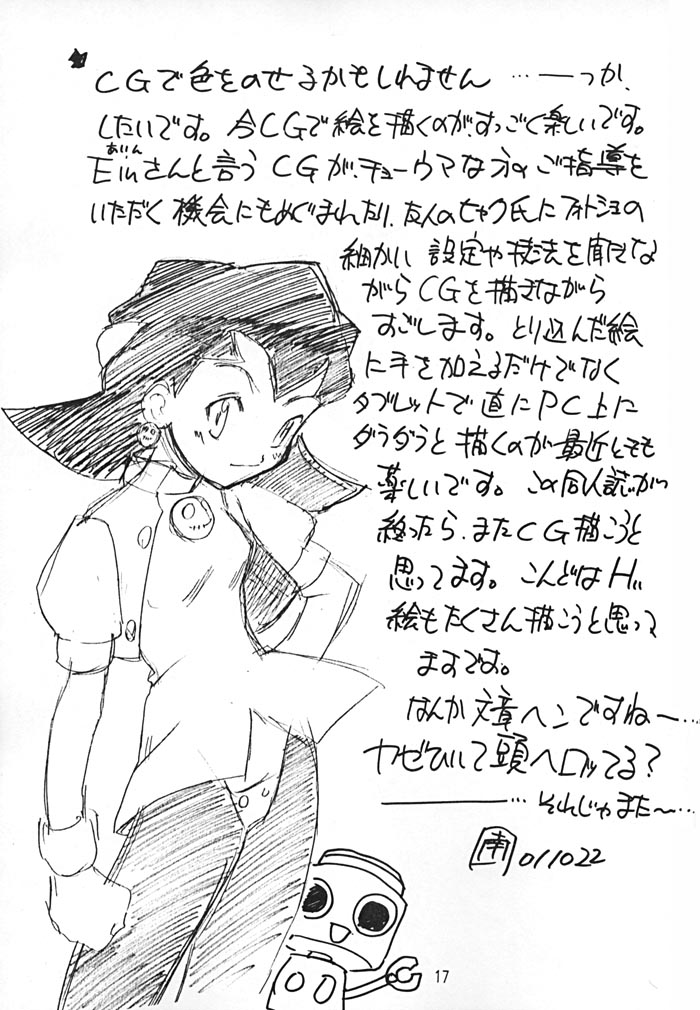 CGで色をのせるかもしれません…──つか、
したいです。今CGで絵を描くのが、すっごく楽しいです。
あいん
Einさんと言うCGが、チョーウマな方のご指導を
いただく機会にもめぐまれたり、友人のセャク氏にフォトショの
細かい設定や技法を聞きな
がらCGを描きながら
すごします。とり込んだ絵
に手を加えるだけでなく
タブレットで直にPC上に
ダラダラと描くのが最近とても
楽しいです。この同人誌が
終ったら、またCG描こうと
思ってます。こんどはHぃ
絵もたくさん描こうと思って
ますです。
なんか文章ヘンですねー…
カゼひいて頭ヘロってる?
────…それじゃまた〜…
南 011022
17